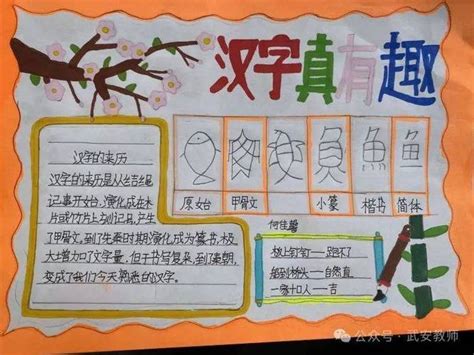 汉字真有趣
汉字的来历
汉字的来历是从结绳
记事开始,演化成在木
片或竹片上刻记,产生
了甲骨文,到了先秦时期演化成为篆书,极
大增加了文字量,但于书写复杂,到了秦朝,
变成了我们今天熟悉的汉字。
魚 鱼
原始 甲骨文 小篆 楷书 简体
板上钉钉——跑不了
船到桥头——自然直
一家十口人——吉
公众号·武安教师